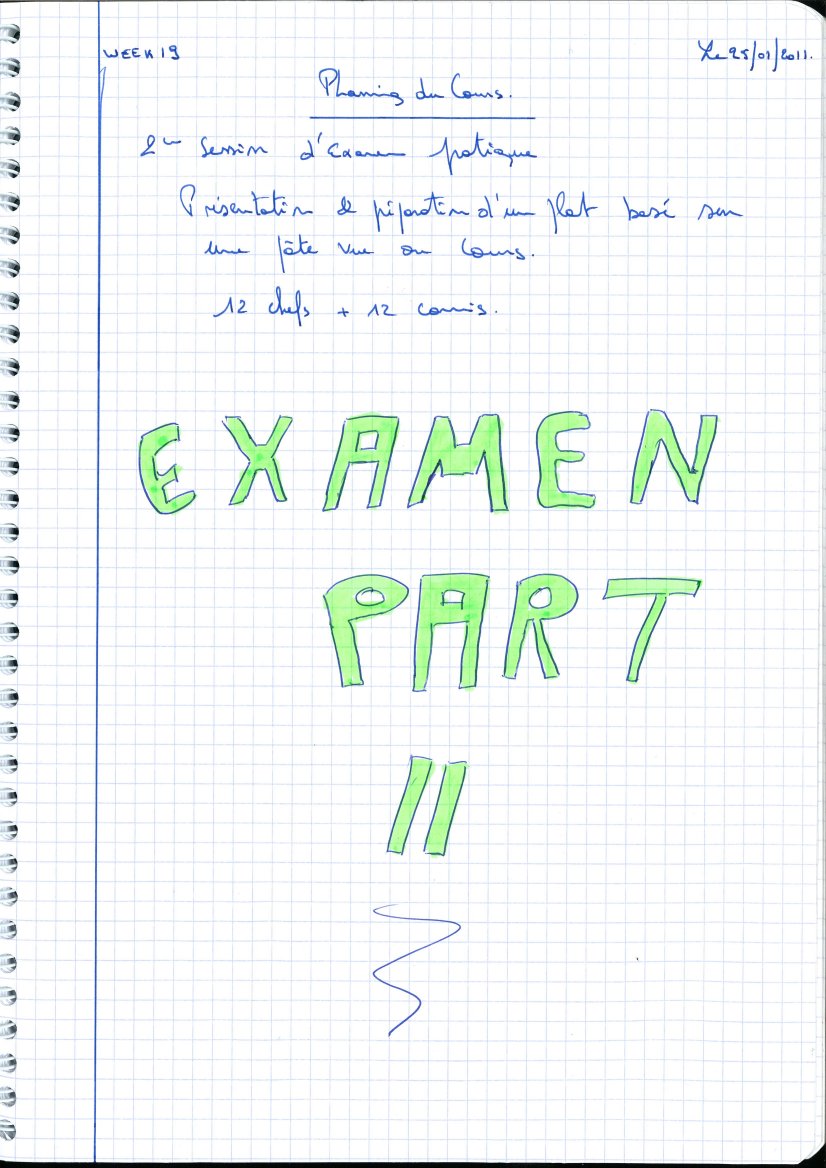 WEEK 19
Le 25/01/2011.
Planning du Cours.
2ème Session d'Examen pratique
Présentation & préparation d'un plat basé sur
une pâte vue au Cours.
12 chefs + 12 commis.
EXAMEN
PART
II